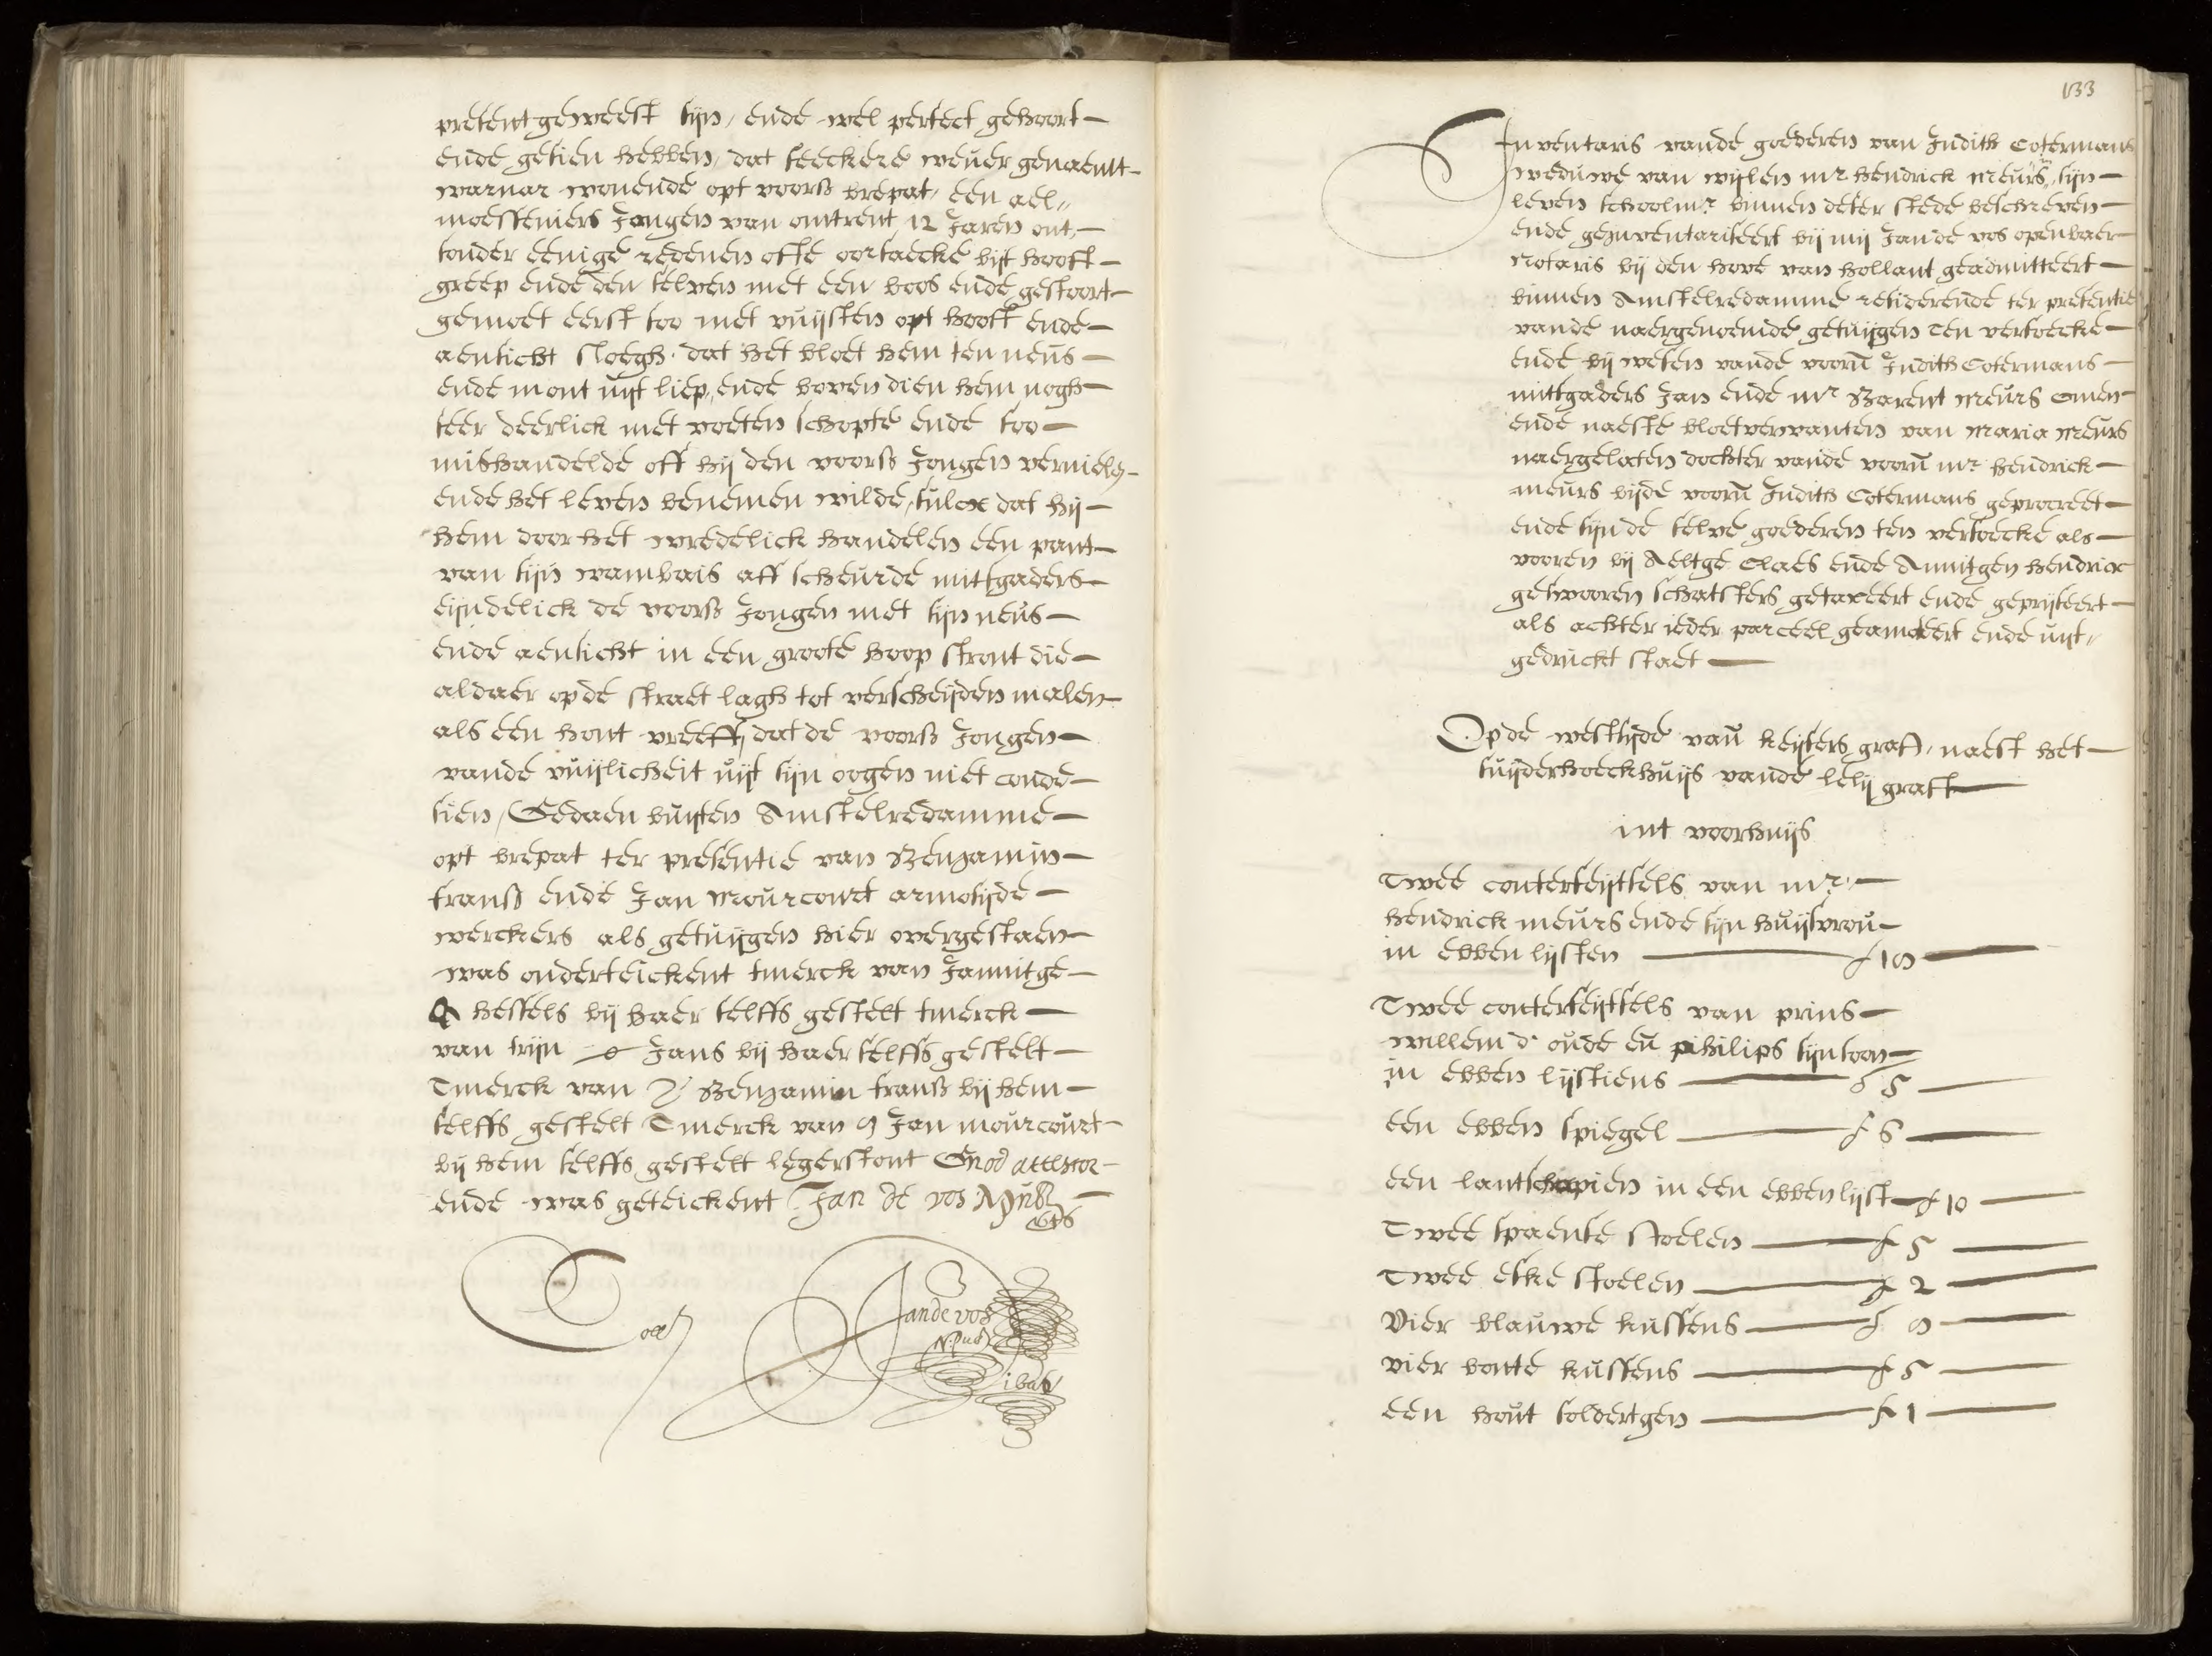 present geweest sijn, ende wel perfect gehoort
ende gesien hebben, dat seeckere wever genaemt
warnar wonende opt voorss brepat, een ael„
moesseniers Jongen van omtrent 12 Jaren out,
sonder eenige redenen ofte oorsaecke bijt hooft
greep ende den selven met een boos ende gestoort
gemoet eerst soo met vuijsten opt hooft ende
aensicht sloegh. dat het bloet hem ten neus
ende mont uijt liep, ende boven dien hem nogh
seer deerlick met voeten schopte ende soo
mishandelde off hij den voorss Jongen vernielen
ende het leven benemen wilde, sulcx dat hij
hem door het wredelick handelen een pant
van sijn wambais aff scheurde mitsgaders
eijndelick de voorss Jongen met sijn neus
ende aensicht in een groote hoop stront die
aldaer op de straet lagh tot verscheijden malen
als een hont vreeff, dat de voorss Jongen
vande vuijlicheit uijt sijn oogen niet conde
sien, Gedaen buijten Amstelredamme
opt brepat ter presentie van Benjamin
franss ende Jan Mourcourt armosijde
werckers als getuijgen hier overgestaen
was onderteickent tmerck van Jannitge
hessels bij haer selffs gestelt tmerck
van trijn Jans bij haer selffs gestelt
Tmerck van Benjamin franss bij hem
selffs gestelt Tmerck van Jan mourcourt
bij hem selffs gestelt legerstont Quod attestor
ende was geteickent Jan de vos
Jan de vos
N. Pub
133
Inventaris vande goederen van Judith Cotermans
weduwe van wijlen mr hendrick Meurs, in sijn
leven schoolmr binnen deser stede beschreven
ende geinventariseert bij mij Jan de vos openbaer
Notaris bij den hove van hollant geadmitteert
binnen Amstelredamme residerende ter presentie
vande naergenoemde getuijgen Ten versoecke
ende bij wesen vande voorn Judith Cotermans
mitsgaders Jan ende mr Barent Meurs Omen
ende naeste bloetverwanten van Maria Meurs
naergelaten dochter vande voorn mr hendrick
meurs bijde voorn Judith Cotermans geprocreet
ende sijn de selve goederen ten versoecke als
vooren bij Aeltge Claes ende Annitgen hendricx
geswooren schatsters getaxeert ende geprijseert
als achter ieder parceel geannoteert ende uijt„
gedruckt staet
Op de westsijde van keijsers graft, naest het
suijderhoeckhuijs vande lelij graft
int voorhuijs
Twee conterfeijtsels van mr
hendrick meurs ende sijn huijsvrou
in ebben lijsten
Twee conterfeijtsels van prins
willem d' oude en philips sijn soon
in ebben lijstiens f 5
een ebben spiegel f 6
een lantschapien in een ebben lijst f 10
Twee spaense stoelen f 5
Twee eske stoelen f 2
Vier blauwe kussens
vier bonte kussens f 5
een hout soldertgen f 1